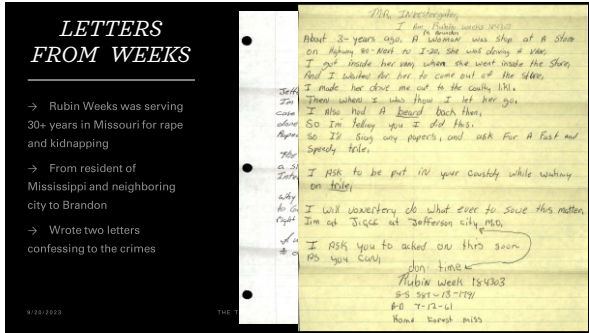 LETTERS
FROM WEEKS
→ Rubin Weeks was serving
30+ years in Missouri for rape
and kidnapping
→ From resident of
Mississippi and neighboring
city to Brandon
→ Wrote two letters
confessing to the crimes
9/20/2023
THE T
Jeff
I'm
case
done
Paper
a S
Inte
why
to G
right
Mr. Investergater
I Am Rubin Weeks
About 3- years ago. A Woman was stop at A Store
IN Brandon
on Highway 80-Next to I-20, She was driving A Van,
I got inside her van, when she went inside the Store,
And I waited for her to come out of the Store,
I made her drive me out to the
Then when I was thow I let her go.
I Also had A beard back then,
So Im telling you I did this.
So I'll sing any papers, and ask For A Fast and
Speedy trile,
I Ask to be put in your Caustody while wating
on trile,
I will vowertery do what ever to sove this matter,
Iim at JCCC at Jefferson city M.O,
I Ask you to acked on this soon
As you Can,
don time
Rubin week
S-S
7-12-61
Home Forest miss